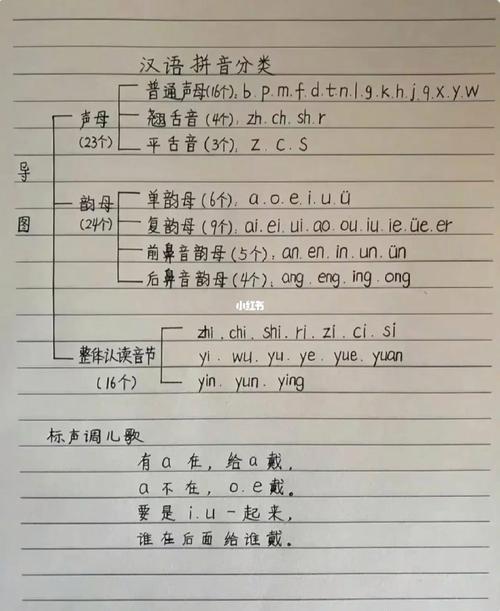 汉语拼音分类
普通声母(16个): b.p.m.f.d.t.n.l.g.k.h.j.q.x.y.w
声母 翘舌音(4个): zh.ch.sh.r
(23个) 平舌音(3个): z.c.s
导图
韵母 单韵母(6个): a.o.e.i.u.ü
(24个) 复韵母(9个): ai.ei.ui.ao.ou.iu.ie.üe.er
前鼻音韵母(5个): an.en.in.un.ün
后鼻音韵母(4个): ang.eng.ing.ong
小红书
zhi.chi.shi.ri.zi.ci.si
整体认读音节 yi.wu.yu.ye.yue.yuan
(16个) yin.yun.ying
标声调儿歌
有a在,给a戴,
a不在,o.e戴。
要是i.u一起来,
谁在后面给谁戴。